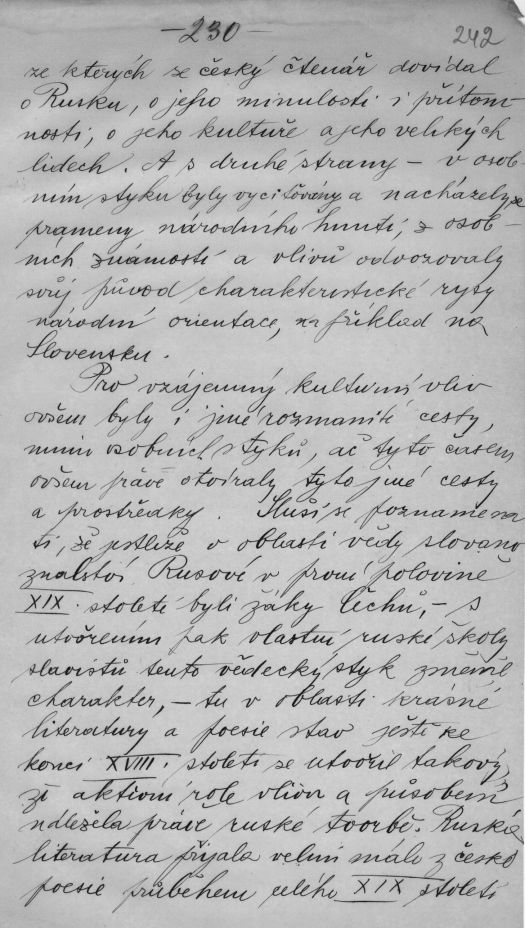 – 230 –
242
ze kterých se český čtenář dovídal
o Rusku, o jeho minulosti i přítom-
nosti, o jeho kultuře a jeho velikých
lidech. A s druhé strany – v osob-
ním styku byly vyciťovány a nacházely se
prameny národního hnutí, z osob-
ních známostí a vlivů odvozovaly
svůj původ charakteristické rysy
národní orientace, na příklad na
Slovensku.
Pro vzájemný kulturní vliv
ovšem byly i jiné rozmanité cesty,
mimo osobních styků, ač tyto časem
ovšem právě otvíraly tyto jiné cesty
a prostředky. Sluší se poznamena
ti, že jestliže v oblasti vědy slovano
znalství Rusové v první polovině
XIX. století byli žáky Čechů, – s
utvořením pak vlastní ruské školy
slavistů tento vědecký styk změnil
charakter, – tu v oblasti krásné
literatury a poesie stav ještě ke
konci XVIII. století se utvořil takový,
že aktivní role vlivu a působení
náležela právě ruské tvorbě. Ruská
literatura přijala velmi málo z české
poesie průběhem celého XIX století